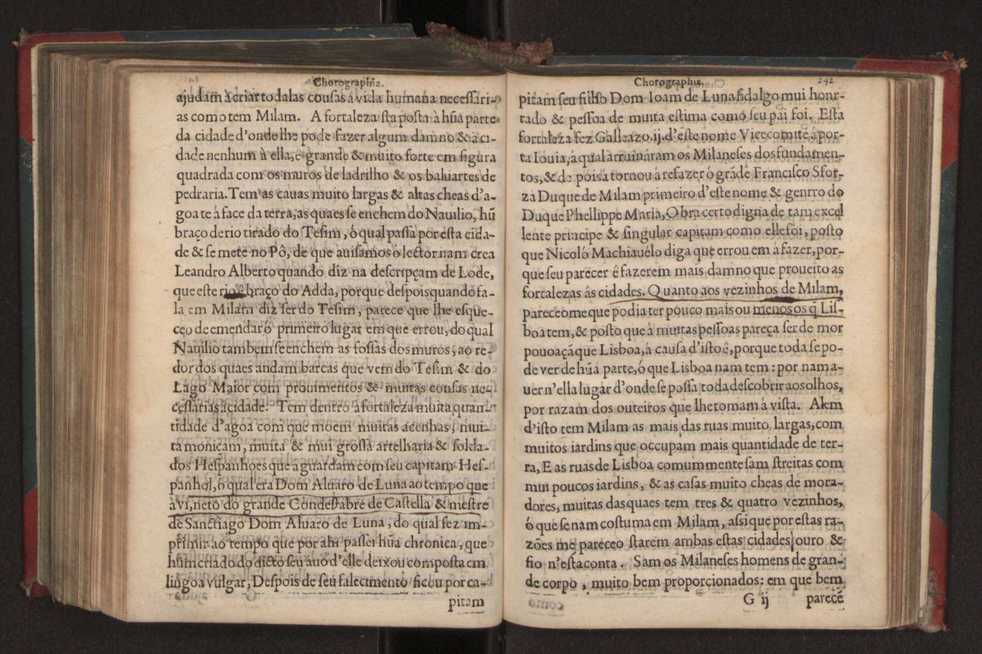 Chorographia.
ajudam à criar todalas cousas á vida humana necessari-
as como tem Milam. A fortaleza sta posta à hũa parte
da cidade d'onde lhe pode fazer algum damno & à ci-
dade nenhum à ella, é grande & muito forte em figura
quadrada com os muros de ladrilho & os baluartes de
pedraria. Tem as cauas muito largas & altas cheas d'a-
goa té à face da terra, as quaes se enchem do Nauilio, hũ
braço de rio tirado do Tesim, ó qual passa por esta cida-
de & se mete no Pô, de que auisamos ó lector nam crea
Leandro Alberto quando diz na descripçam de Lode,
que este rio é braço do Adda, porque despois quando fa-
la em Milam diz ser do Tesim, parece que lhe esque-
ceo de emendar ó primeiro lugar em que errou, do qual
Nauilio tambem se enchem as fossas dos muros, ao re-
dor dos quaes andam barcas que vem do Tesim & do
Lago Maior com prouimentos & muitas cousas ne-
cessarias á cidade. Tem dentro á fortaleza muita quan-
tidade d'agoa com que moem muitas acenhas, mui-
ta moniçam, muita & mui grossa artelharia & solda-
dos Hespanhoes que a guardam com seu capitam Hes-
panhol, ó qual era Dom Aluaro de Luna ao tempo que
à vi, neto do grande Condestabre de Castella & mestre
de Sanctiago Dom Aluaro de Luna, do qual fez im-
primir ao tempo que por ahi passei hũa chronica, que
hum criado do dicto seu auó d'elle deixou composta em
lingoa vulgar, Despois de seu falecimento ficou por ca-
pitam
Chorographia. 242
pitam seu filho Dom Ioam de Luna fidalgo mui honr-
rado & pessoa de muita estima como seu pai foi. Esta
fortaleza fez Galleazo .ij. d'este nome Vicecomite á por-
ta Iouia, à qual arruinaram os Milaneses dos fundamen-
tos, & depois à tornou à refazer ó grãde Francisco Sfor-
za Duque de Milam primeiro d'este nome & genrro do
Duque Phellippe Maria, Obra certo digna de tam excel
lente principe & singular capitam como elle foi, posto
que Nicoló Machiauélo diga que errou em à fazer, por-
que seu parecer é fazerem mais damno que proueito as
fortalezas ás cidades. Quanto aos vezinhos de Milam,
pareceome que podia ter pouco mais ou menos os q̃ Lis-
boa tem, & posto que à muitas pessoas pareça ser de mor
pouoaçã que Lisboa, à causa d'isto é, porque toda se po-
de ver de hũa parte, ó que Lisboa nam tem: por nam a-
uer n'ella lugar d'onde se possa toda descobrir aos olhos,
por razam dos outeiros que lhe tomam á vista. Alem
d'isto tem Milam as mais das ruas muito largas, com
muitos iardins que occupam mais quantidade de ter-
ra, E as ruas de Lisboa comummente sam streitas com
mui poucos iardins, & as casas muito cheas de mora-
dores, muitas das quaes tem tres & quatro vezinhos,
ó que se nam costuma em Milam, assi que por estas ra-
zões me pareceo starem ambas estas cidades ouro &
fio n'esta conta. Sam os Milaneses homens de gran-
de corpo, muito bem proporcionados: em que bem
G ij parecẽ